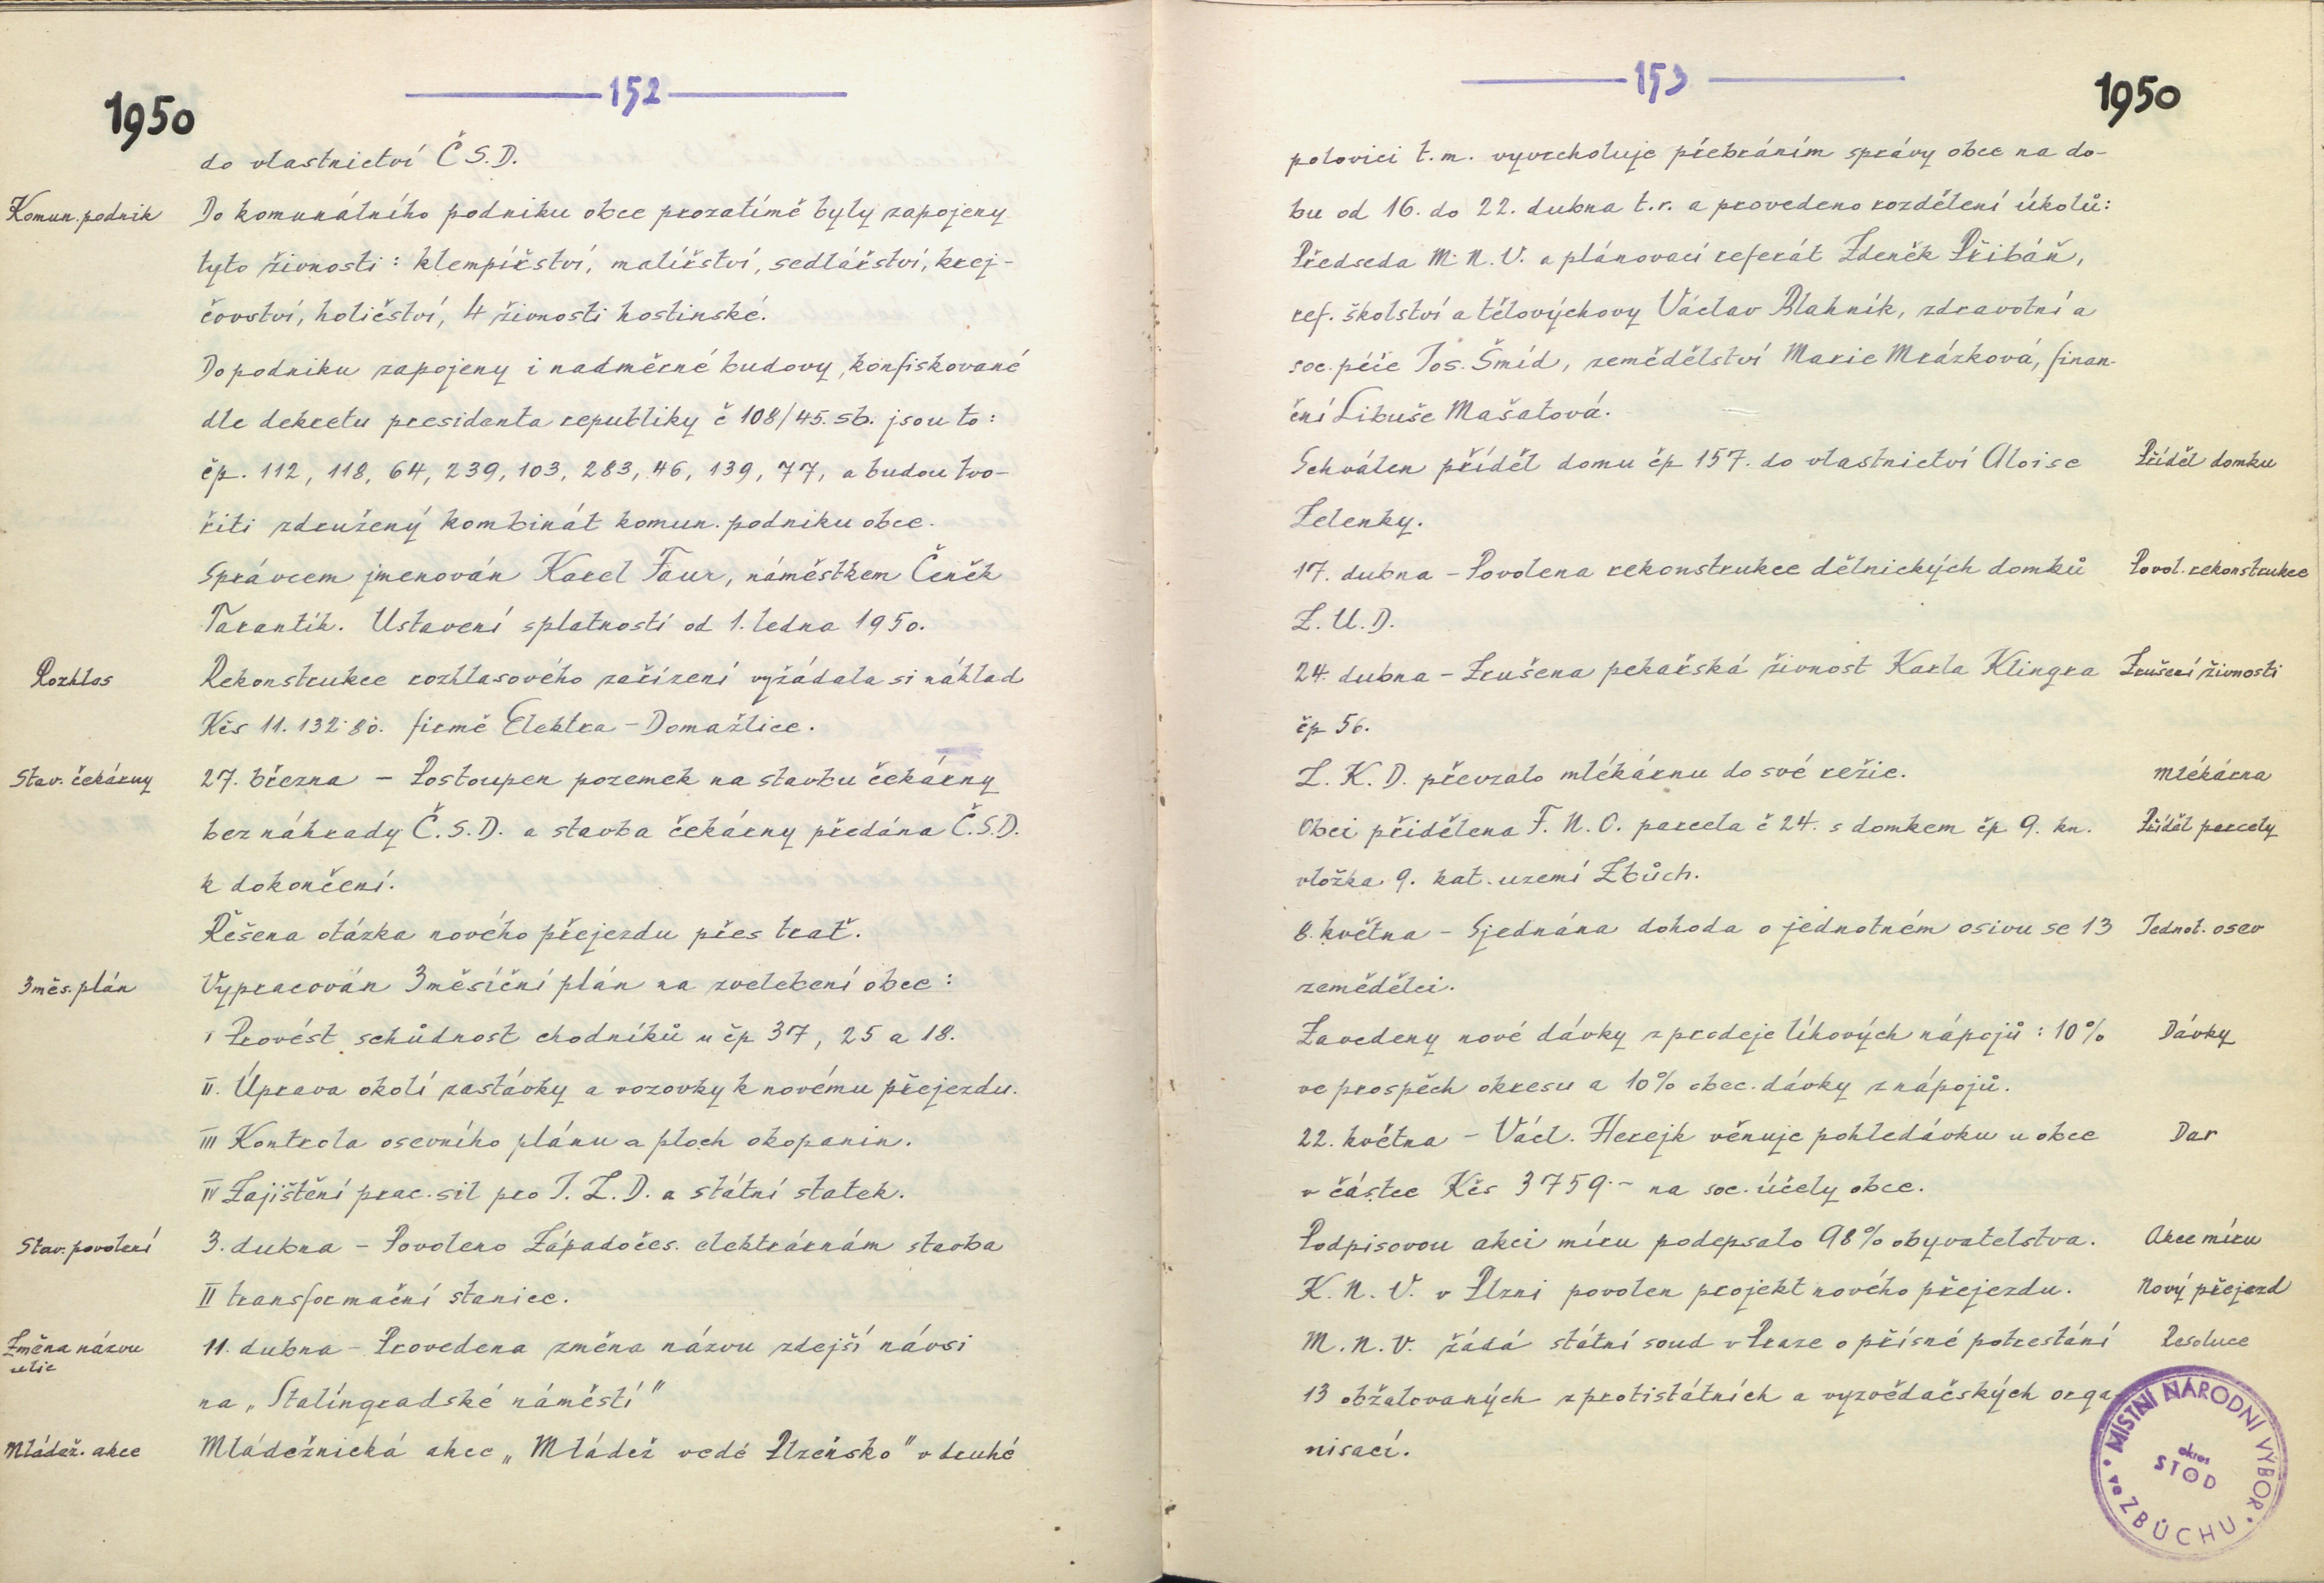 152
1950
do vlastnictví Č S.D.
Komun. podnik Do komunálního podniku obce prozatímě byly zapojeny
tyto živnosti: klempířství, malířství, sedlářství, krej-
čovství, holičství, 4 živnosti hostinské.
Do podniku zapojeny i nadměrné budovy, konfiskované
dle dekretu presidenta republiky č 108/45. sb. jsou to:
čp. 112, 118, 64, 239, 103, 283, 46, 139, 77, a budou tvo-
řiti združený kombinát komun. podniku obce.
Správcem jmenován Karel Faur, náměstkem Čeněk
Tarantík. Ustavení splatností od 1. ledna 1950.
Rozhlas Rekonstrukce rozhlasového zařízení vyžádala si náklad
Kčs 11.132·80. firmě Elektra - Domažlice.
Stav. čekárny 27. března - Postoupen pozemek na stavbu čekárny
bez náhrady Č.S.D. a stavba čekárny předána Č.S.D.
k dokončení.
Řešena otázka nového přejezdu přes trať.
3 měs. plán Vypracován 3 měsíční plán na zvelebení obce:
I Provést schůdnost chodníků u čp 37, 25 a 18.
II. Úprava okolí zastávky a vozovky k novému přejezdu.
III Kontrola osevního plánu a ploch okopanin.
IV Zajištění prac. sil pro J.Z.D. a státní statek.
Stav. povolení 3. dubna - Povoleno Západočes. elektrárnám stavba
II transformační stanice.
Změna názvu 11. dubna - Provedena změna názvu zdejší návsi
ulic
na „Stalíngradské náměstí"
Mládež. akce Mládežnická akce „Mládež vede Plzeňsko" v druhé
153
1950
polovici t.m. vyvrcholuje přebráním správy obce na do-
bu od 16. do 22. dubna t.r. a provedeno rozdělení úkolů:
Předseda M.N.V. a plánovací referát Zdeněk Přibáň,
ref. školství a tělovýchovy Václav Blahník, zdravotní a
soc. péče Jos. Šmíd, zemědělství Marie Mrázková, finan-
ční Libuše Mašatová.
Schválen příděl domu čp 157. do vlastnictví Aloise Příděl domku
Zelenky.
17. dubna - Povolena rekonstrukce dělnických domků Povol. rekonstrukce
Z.U.D.
24. dubna - Zrušena pekařská živnost Karla Klingra Zrušení živnosti
čp 56.
Z.K.D. převzalo mlékárnu do své režie. Mlékárna
Obci přidělena F.N.O. parcela č 24. s domkem čp 9. kn. Příděl parcely
vložka 9. kat. uzemí Zbůch.
8. května - Sjednána dohoda o jednotném osivu se 13 Jednot. osev
zemědělci.
Zavedeny nové dávky z prodeje líhových nápojů: 10% Dávky
ve prospěch okresu a 10% obec. dávky z nápojů.
22. května - Václ. Herejk věnuje pohledávku u obce Dar
v částce Kčs 3759·- na soc. účely obce.
Podpisovou akci míru podepsalo 98% obyvatelstva. Akce míru
K.N.V. v Plzni povolen projekt nového přejezdu. Nový přejezd
M.N.V. žádá státní soud v Praze o přísné potrestání Resoluce
13 obžalovaných z protistátních a vyzvědačských orga-
nisací.
MÍSTNÍ NÁRODNÍ VÝBOR
okres
STOD
ve ZBŮCHU